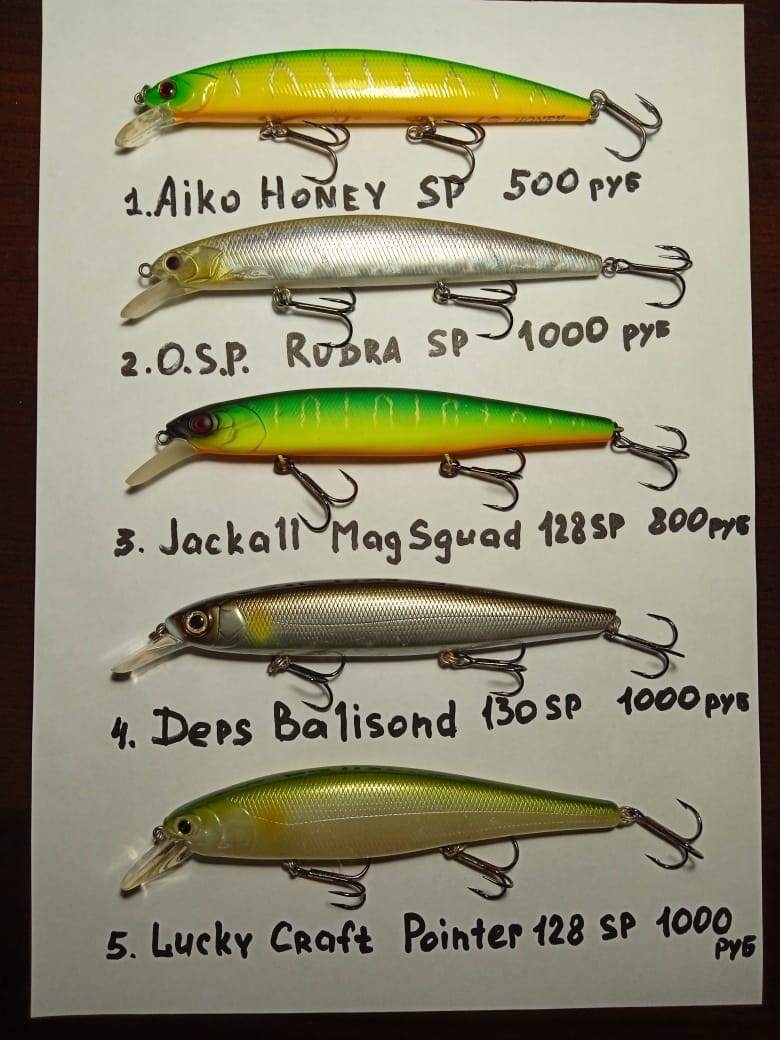 HONEY
1. Aiko HONEY SP 500 руб
2. O.S.P. RUDRA SP 1000 руб
3. Jackall MagSquad 128 SP 800 руб
4. Deps Balisond 130 SP 1000 руб
5. Lucky Craft Pointer 128 SP 1000
руб